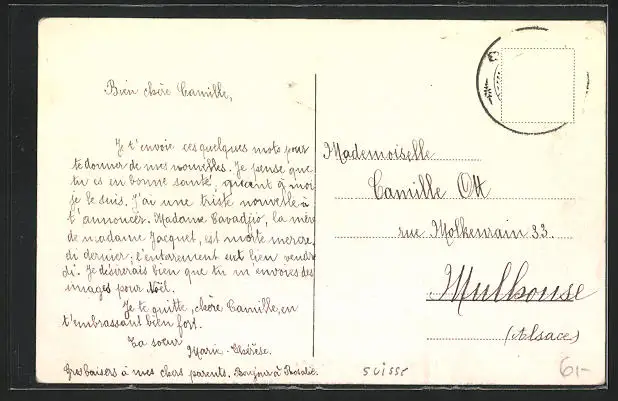 Bien chère Camille,
Je t'envoie ces quelques mots pour
te donner de mes nouvelles. Je pense que
tu es en bonne santé, quant à moi
je le suis. J'ai une triste nouvelle à
t'annoncer. Madame Cavadjio, la mère
de madame Jacquet, est morte mercre
di dernier; l'enterrement eut lien vendre
di. Je désirerais bien que tu m'envoies des
images pour Noël.
Je te quitte, chère Camille, en
t'embrassant bien fort.
Ta sœur
Marie-Thérèse.
Gros baisers à mes chers parents. Bonjour à Rosalie.
Mademoiselle
Camille Ott
rue Molkenrain 33.
Mulhouse
(Alsace)
SUISSE
6,-